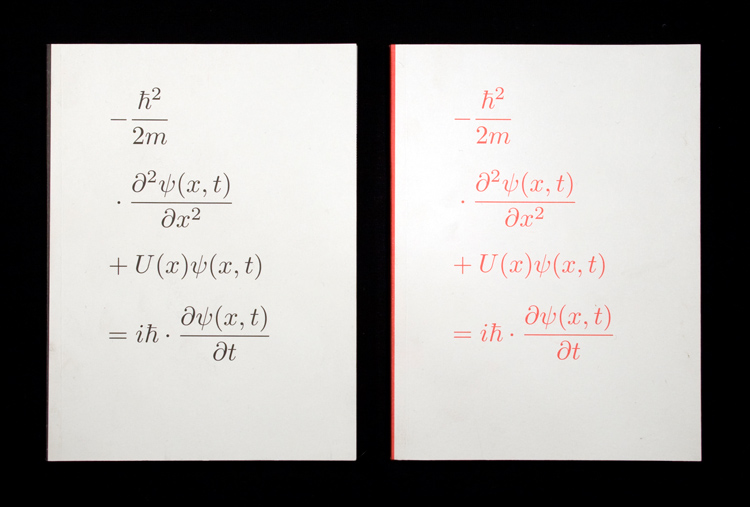 − ℏ²/2m
· ∂²ψ(x, t)/∂x²
+ U(x)ψ(x, t)
= iℏ · ∂ψ(x, t)/∂t
− ℏ²/2m
· ∂²ψ(x, t)/∂x²
+ U(x)ψ(x, t)
= iℏ · ∂ψ(x, t)/∂t